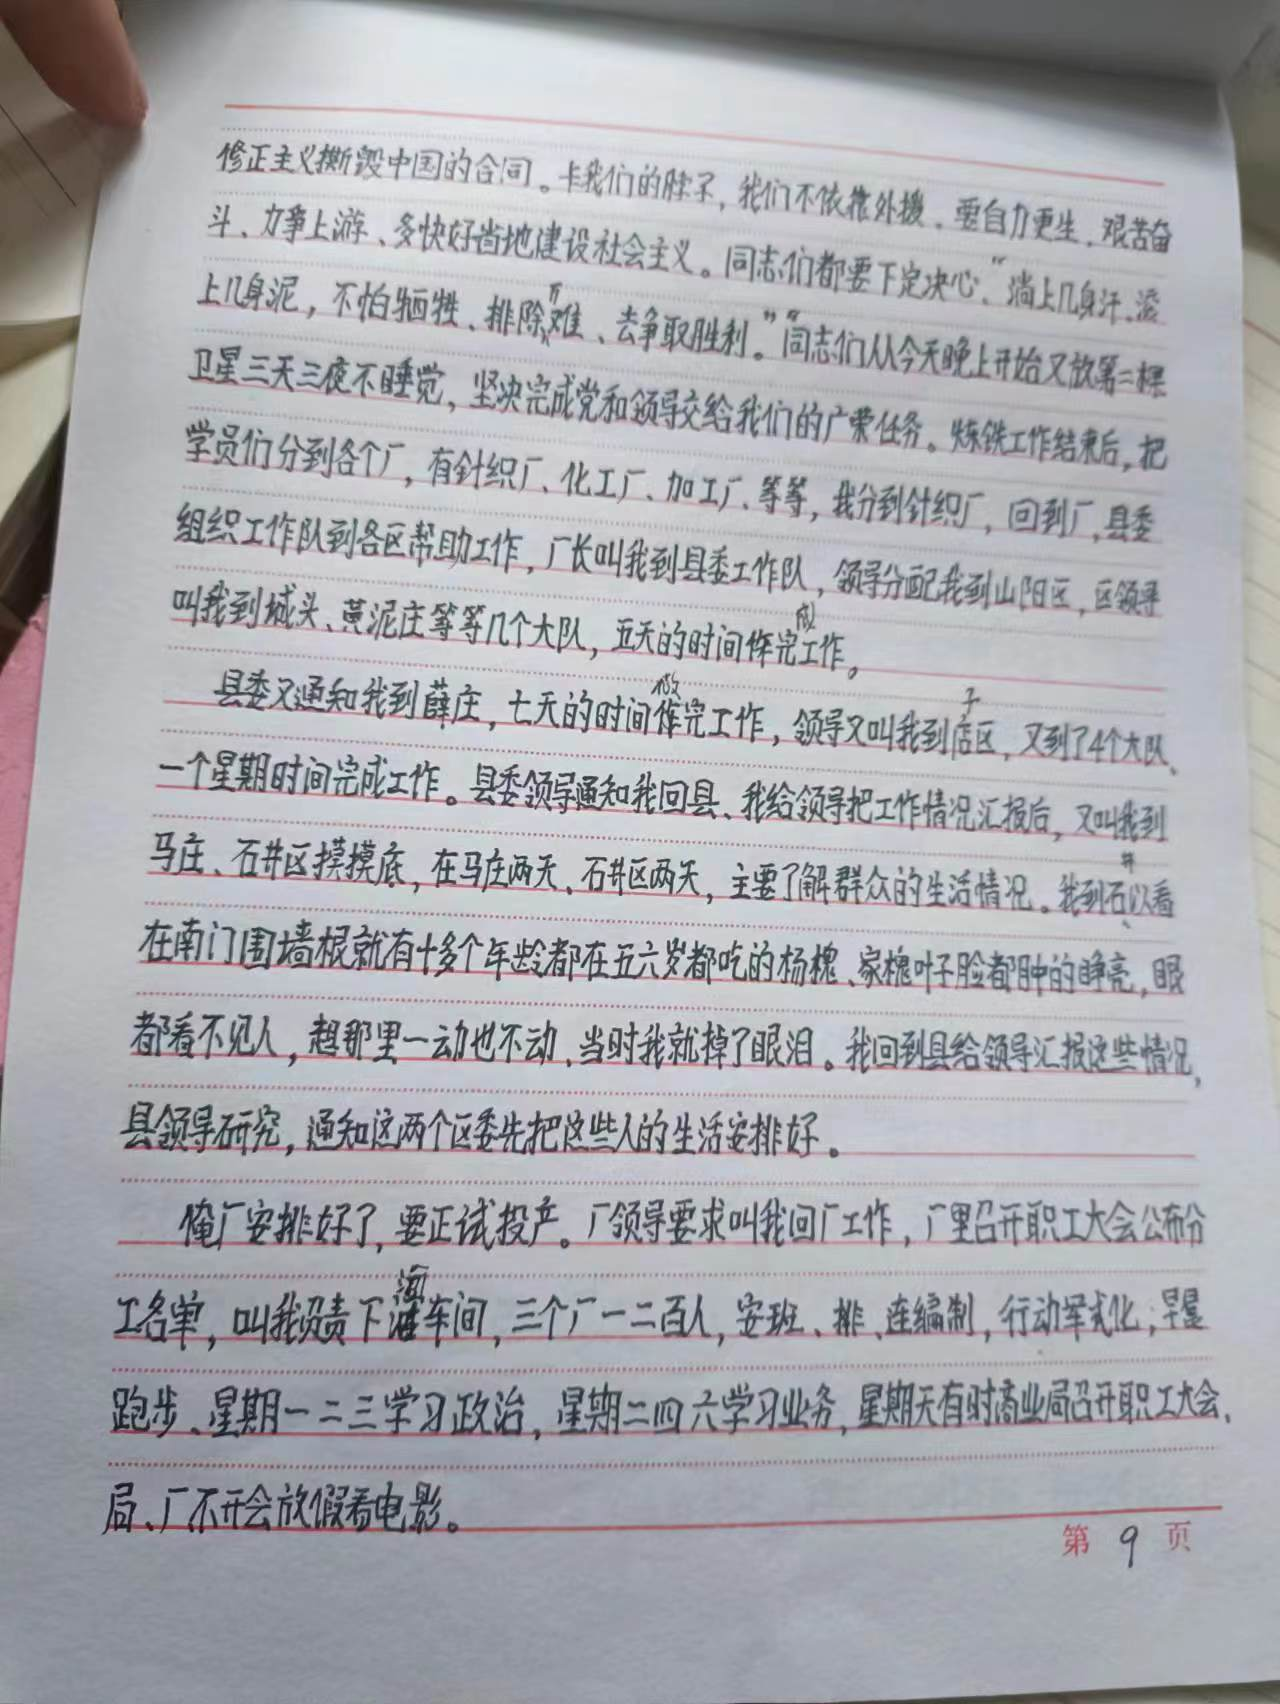 修正主义撕毁中国的合同。卡我们的脖子，我们不依靠外援、要自力更生、艰苦奋
斗、力争上游、多快好省地建设社会主义。同志们都要下定决心、“淌上几身汗、滚
上几身泥，不怕牺牲、排除万难、去争取胜利。”“同志们从今天晚上开始又放第二棵
卫星三天三夜不睡觉，坚决完成党和领导交给我们的广荣任务。炼铁工作结束后，把
学员们分到各个厂，有针织厂、化工厂、加工厂、等等，我分到针织厂，回到厂，县委
组织工作队到各区帮助工作，厂长叫我到县委工作队，领导分配我到山阳区，区领导
叫我到城头、黄泥庄等等几个大队，五天的时间完成工作。
县委又通知我到薛庄，七天的时间做完工作，领导又叫我到店子区，又到了4个大队、
一个星期时间完成工作。县委领导通知我回县、我给领导把工作情况汇报后，又叫我到
马庄、石井区摸摸底，在马庄两天、石井区两天，主要了解群众的生活情况。我到石井以看
在南门围墙根就有十多个年龄都在五六岁都吃的杨槐、家槐叶子脸都肿的睁亮，眼
都看不见人，趄那里一动也不动、当时我就掉了眼泪。我回到县给领导汇报这些情况，
县领导研究，通知这两个区委先把这些人的生活安排好。
俺厂安排好了，要正试投产。厂领导要求叫我回厂工作，厂里召开职工大会公布分
工名单，叫我负责下车间，三个厂一二百人，安班、排、连编制，行动军式化；早晨
跑步、星期一二三学习政治，星期二四六学习业务，星期天有时商业局召开职工大会、
局、厂不开会放假看电影。
第 9 页